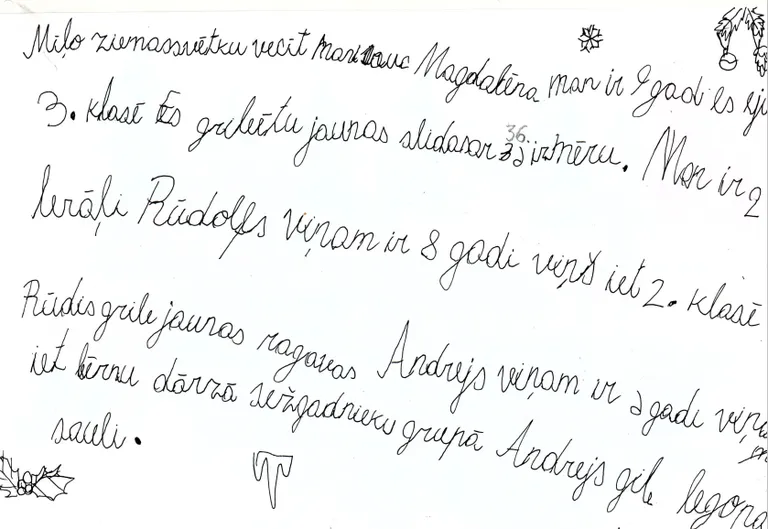 Miļo ziemassvētku vecīt Magdalēna man ir 9 gadi es eju
3. klasē Es gribētu jaunas slidasar 36 izmēru. Man ir 2
brāļi Rūdolfs viņam ir 8 gadi viņš iet 2. klasē
Rūdis grib jaunas ragavas Andrejs viņam ir gadi viņš
iet bērnu dārzā sešgadnieku grupā Andrejs gib legona
sauli.